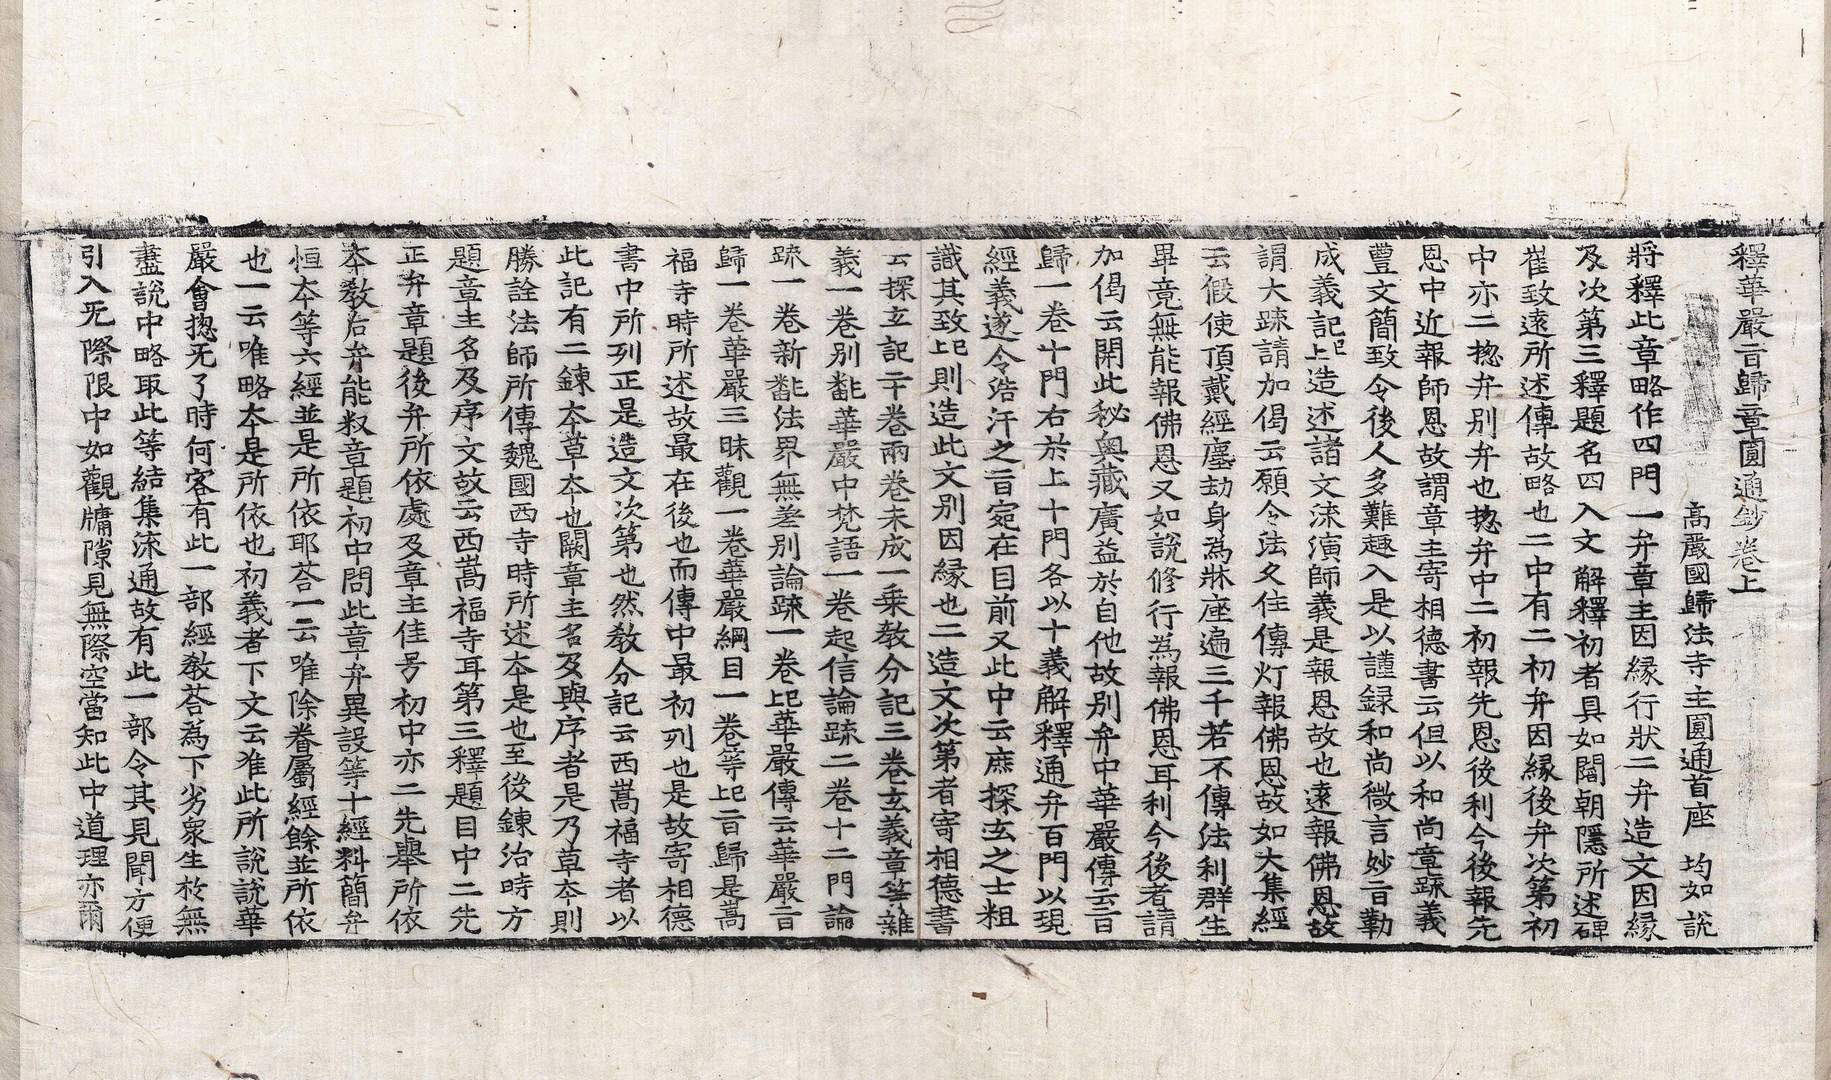 釋華嚴旨歸章圓通鈔卷上
高嚴國歸法寺主圓通首座 均如 說
將釋此章略作四門一弁章主因緣行狀二弁造文因緣
及次第三釋題名四入文解釋初者具如閻朝隱所述碑
崔致遠所述傳故略也二中有二初弁因緣後弁次第初
中亦二揔弁別弁也揔弁中二初報先恩後利今後報先
恩中近報師恩故謂章主寄相德書云但以和尚章疏義
豊文簡致令後人多難趣入是以謹錄和尚微言妙旨勤
成義記上造述諸文流演師義是報恩故也遠報佛恩故
謂大疏請加偈云願令法久住傳灯報佛恩故如大集經
云假使頂戴經塵劫身為牀座遍三千若不傳法利群生
畢竟無能報佛恩又如說修行為報佛恩耳利今後者請
加偈云開此秘奧藏廣益於自他故別弁中華嚴傳云旨
歸一卷十門右於上十門各以十義解釋通弁百門以現
經義遂令浩汗之旨宛在目前又此中云庶探玄之士粗
識其致上則造此文別因緣也二造文次第者寄相德書
云探玄記二十卷兩卷未成一乗教分記三卷玄義章等雜
義一卷別飜華嚴中梵語一卷起信論疏二卷十二門論
疏一卷新飜法界無差別論疏一卷上華嚴傳云華嚴旨
歸一卷華嚴三昧觀一卷華嚴綱目一卷等上旨歸是嵩
福寺時所述故最在後也而傳中最初列也是故寄相德
書中所列正是造文次第也然教分記云西嵩福寺者以
此記有二鍊夲草夲也闕章主名及與序者是乃草夲則
勝詮法師所傳魏國西寺時所述夲是也至後鍊治時方
題章主名及序文故云西嵩福寺耳第三釋題目中二先
正弁章題後弁所依處及章主佳号初中亦二先舉所依
夲教后弁能㕘章題初中問此章弁異說等十經料簡弁
恒夲等六經並是所依耶荅一云唯除眷屬經餘並所依
也一云唯略夲是所依也初義者下文云准此所說說華
嚴會揔无了時何容有此一部經教荅為下劣衆生於無
盡說中略取此等結集流通故有此一部令其見聞方便
引入无際限中如觀牖隙見無際空當知此中道理亦爾